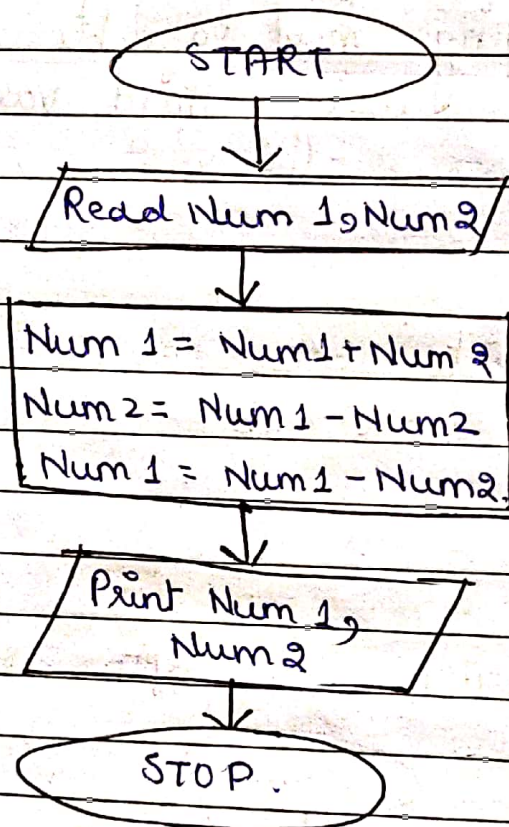 START
Read Num 1, Num 2
Num 1 = Num1 + Num 2
Num 2 = Num 1 - Num2
Num 1 = Num 1 - Num2.
Print Num 1,
Num 2
STOP.